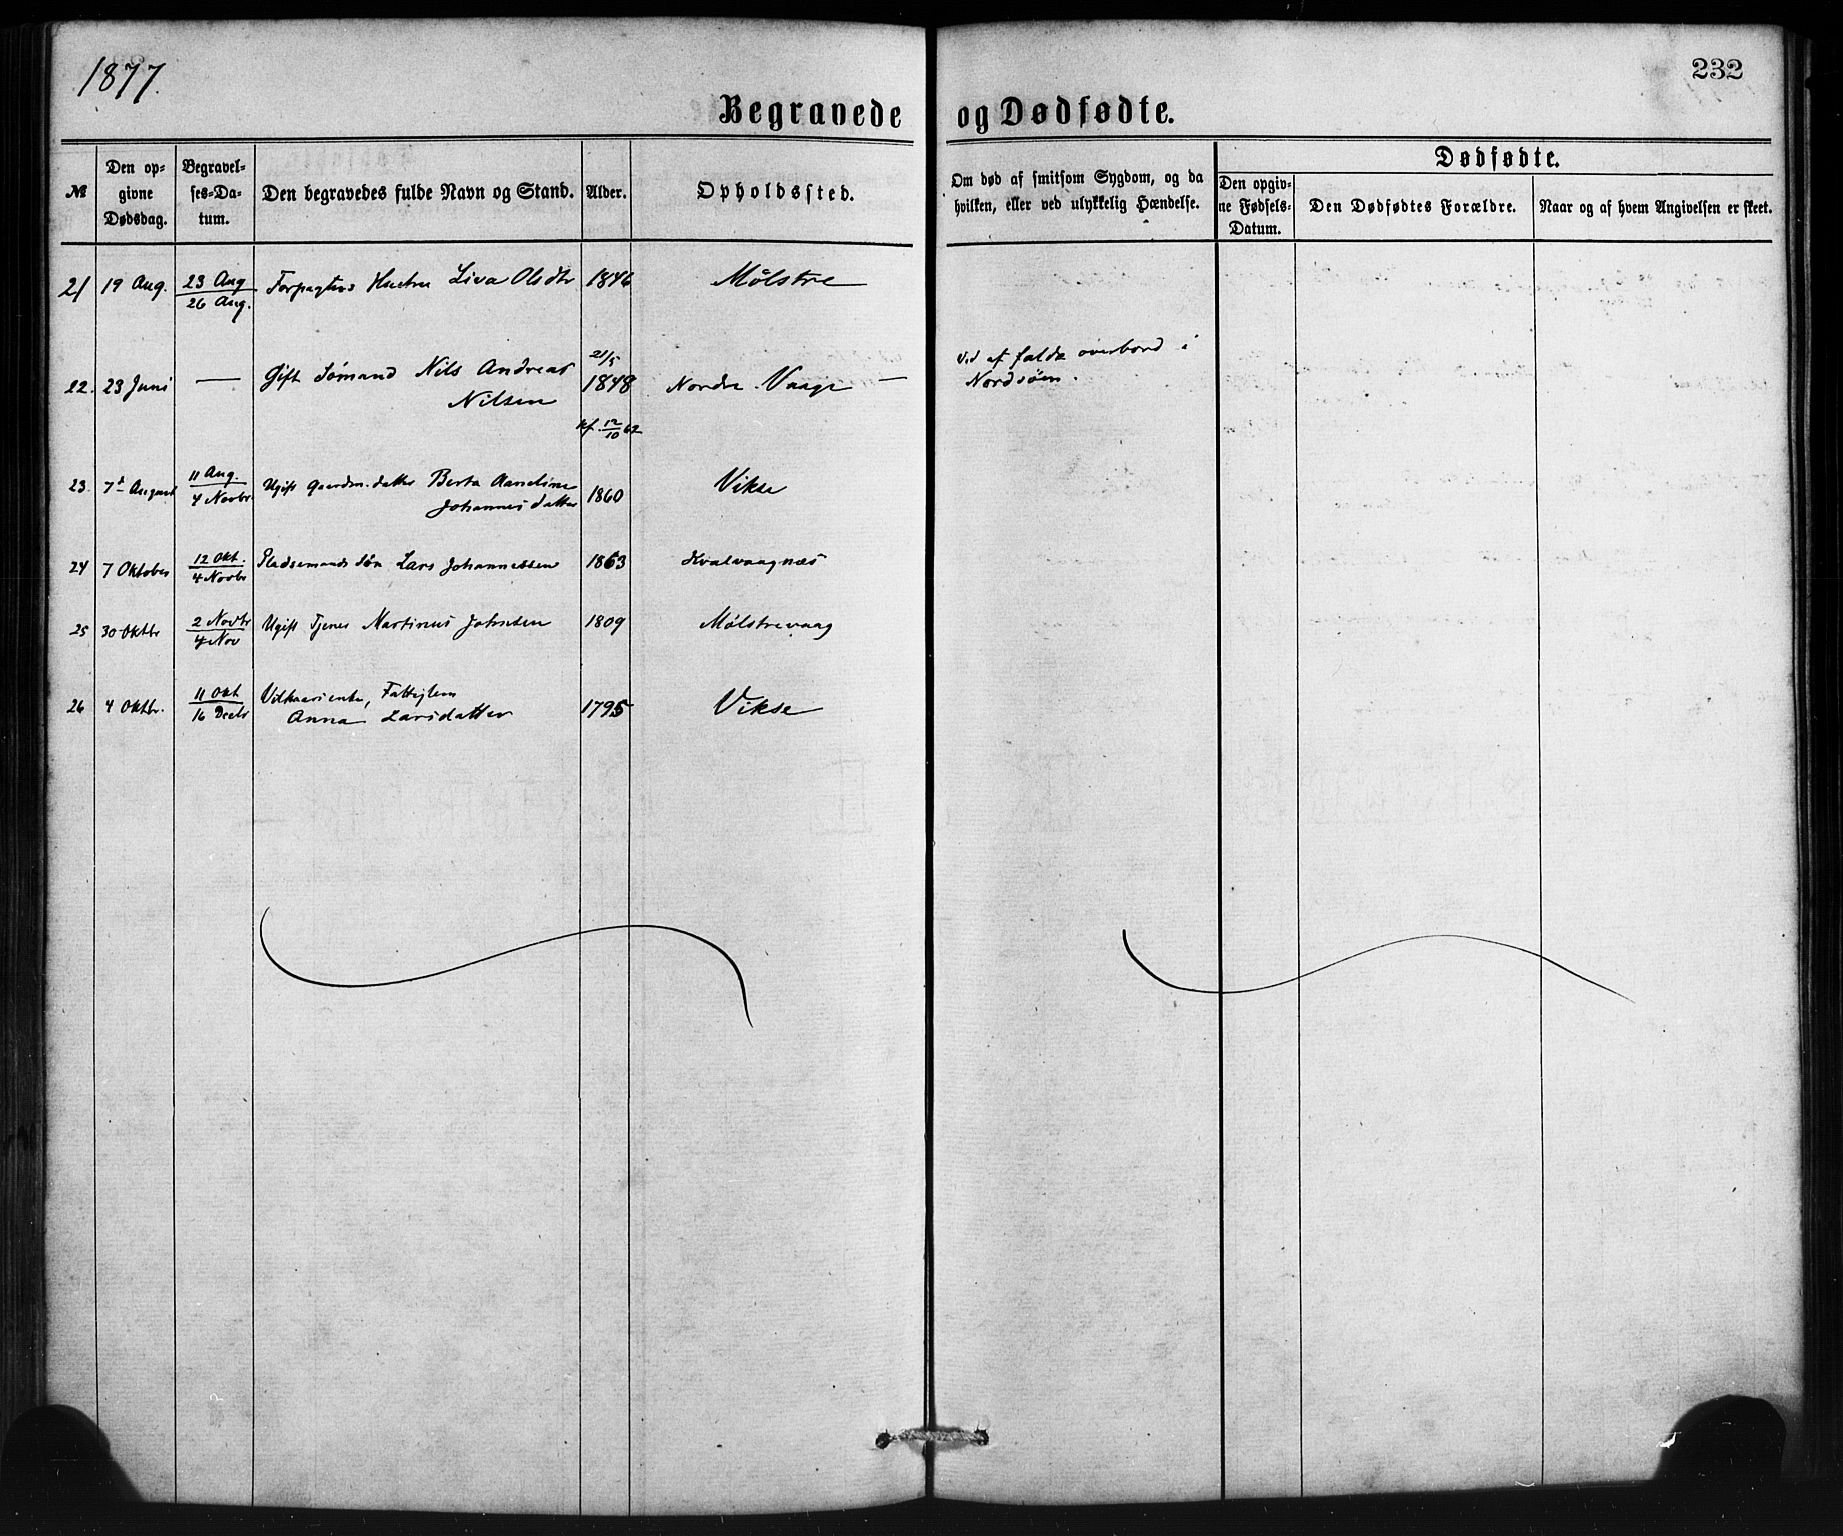 1877.
232
Begravede og Dødfødte.
№
Den op-
givne
Dødsdag.
Begravel-
ses-Da-
tum.
Den begravedes fulde Navn og Stand.
Alder.
Opholdssted.
Om død af smitsom Sygdom, og da
hvilken, eller ved ulykkelig Hændelse.
Dødfødte.
Den opgiv-
ne Fødsels-
Datum.
Den Dødfødtes Forældre.
Naar og af hvem Angivelsen er skeet.
21 19 Aug. 23 Aug Forpagters Hustru Liva Olsdtr 1846 Mølstre
26 Aug.
21/5
22. 23 Juni — Gift Sømand Nils Andreas 1848 Nordre Vaage — Ved at falde overbord i
Nilsen Nordsøen.
kf. 12/10 62
23. 7d August 11 Aug. Ugift Gaardm. datter Berta 1860 Vikse
4 Novbr Johannesdatter
24 7 Oktober 12 Okt. Pladsemands Søn Lars Johannessen 1863 Hvalvaagnæs
4 Novbr
25 30 Oktbr 2 Novbr Ugift Tjener Martinus Johnsen 1809 Mølstrevaag
4 Nov
26 4 Oktbr. 11 Okt Vilkaarsenke, Fattiglem 1795 Vikse
16 Decbr Anna Larsdatter